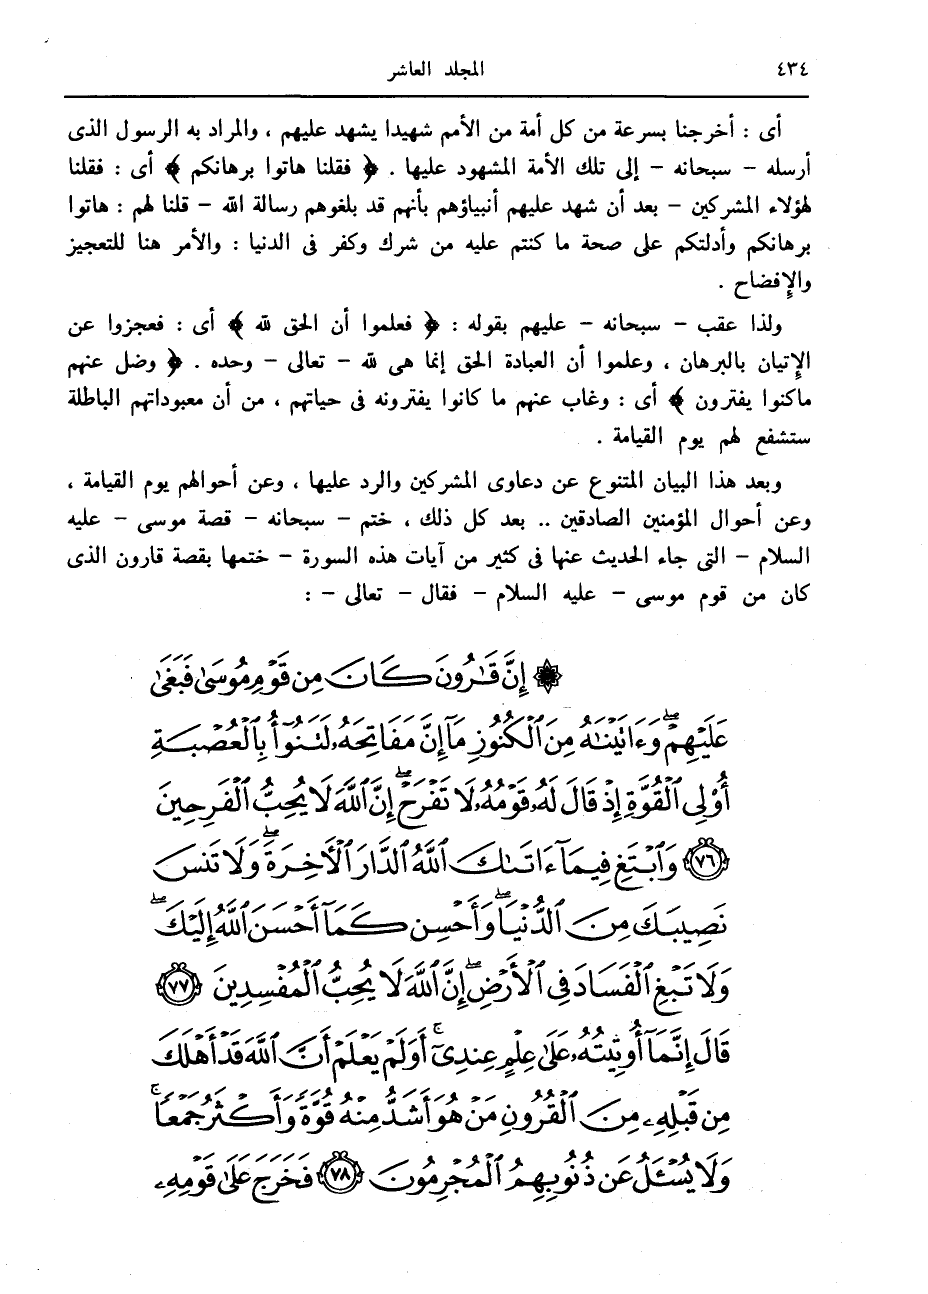 ٤٣٤ المجلد العاشر
أى : أخرجنا بسرعة من كل أمة من الأمم شهيدا يشهد عليهم ، والمراد به الرسول الذى
أرسله – سبحانه – إلى تلك الأمة المشهود عليها . ﴿ فقلنا هاتوا برهانكم ﴾ أى : فقلنا
لهؤلاء المشركين – بعد أن شهد عليهم أنبياؤهم بأنهم قد بلغوهم رسالة الله – قلنا لهم : هاتوا
برهانكم وأدلتكم على صحة ما كنتم عليه من شرك وكفر فى الدنيا : والأمر هنا للتعجيز
والإفضاح .
ولذا عقب – سبحانه – عليهم بقوله : ﴿ فعلموا أن الحق لله ﴾ أى : فعجزوا عن
الإتيان بالبرهان ، وعلموا أن العبادة الحق إنما هى لله – تعالى – وحده . ﴿ وضل عنهم
ماكنوا يفترون ﴾ أى : وغاب عنهم ما كانوا يفترونه فى حياتهم ، من أن معبوداتهم الباطلة
ستشفع لهم يوم القيامة .
وبعد هذا البيان المتنوع عن دعاوى المشركين والرد عليها ، وعن أحوالهم يوم القيامة ،
وعن أحوال المؤمنين الصادقين .. بعد كل ذلك ، ختم – سبحانه – قصة موسى – عليه
السلام – التى جاء الحديث عنها فى كثير من آيات هذه السورة – ختمها بقصة قارون الذى
كان من قوم موسى – عليه السلام – فقال – تعالى – :
۞ إِنَّ قَٰرُونَ كَانَ مِن قَوْمِ مُوسَىٰ فَبَغَىٰ
عَلَيْهِمْ ۖ وَءَاتَيْنَٰهُ مِنَ ٱلْكُنُوزِ مَآ إِنَّ مَفَاتِحَهُۥ لَتَنُوٓأُ بِٱلْعُصْبَةِ
أُو۟لِى ٱلْقُوَّةِ إِذْ قَالَ لَهُۥ قَوْمُهُۥ لَا تَفْرَحْ ۖ إِنَّ ٱللَّهَ لَا يُحِبُّ ٱلْفَرِحِينَ
﴿٧٦﴾ وَٱبْتَغِ فِيمَآ ءَاتَىٰكَ ٱللَّهُ ٱلدَّارَ ٱلْءَاخِرَةَ ۖ وَلَا تَنسَ
نَصِيبَكَ مِنَ ٱلدُّنْيَا ۖ وَأَحْسِن كَمَآ أَحْسَنَ ٱللَّهُ إِلَيْكَ ۖ
وَلَا تَبْغِ ٱلْفَسَادَ فِى ٱلْأَرْضِ ۖ إِنَّ ٱللَّهَ لَا يُحِبُّ ٱلْمُفْسِدِينَ ﴿٧٧﴾
قَالَ إِنَّمَآ أُوتِيتُهُۥ عَلَىٰ عِلْمٍ عِندِىٓ ۚ أَوَلَمْ يَعْلَمْ أَنَّ ٱللَّهَ قَدْ أَهْلَكَ
مِن قَبْلِهِۦ مِنَ ٱلْقُرُونِ مَنْ هُوَ أَشَدُّ مِنْهُ قُوَّةً وَأَكْثَرُ جَمْعًا ۚ
وَلَا يُسْـَٔلُ عَن ذُنُوبِهِمُ ٱلْمُجْرِمُونَ ﴿٧٨﴾ فَخَرَجَ عَلَىٰ قَوْمِهِۦ